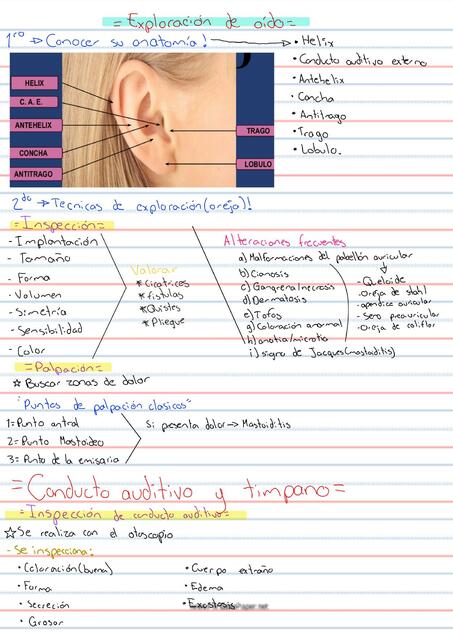 =Exploración de oído=
1ro → Conocer su anatomía!
• Helix
• Conducto auditivo externo
• Antehelix
• Concha
• Antitrago
• Trago
• Lobulo.
HELIX
C. A. E.
ANTEHELIX
CONCHA
ANTITRAGO
TRAGO
LOBULO
2do → Tecnicas de exploración (oreja)!
=Inspección=
- Implantación
- Tamaño
- Forma
- Volumen
- Simetría
- Sensibilidad
- Color
Valorar
* Cicatrices
* fistulas
* Quistes
* Pliegue
Alteraciones frecuentes
a) Malformaciones del pabellón auricular
b) Cianosis
c) Gangrena/necrosis
d) Dermatosis
e) Tofos
g) Coloración anormal
h) anotia/microtia
i) signo de Jacques (mastoiditis)
- Queloide
- Oreja de stahl
- apendice auricular
- Seno preauricular
- Oreja de coliflor
=Palpación=
☆ Buscar zonas de dolor
"Puntos de palpación clasicos"
1= Punto antral
2= Punto Mastoideo
3= Punto de la emisaria
Si presenta dolor → Mastoiditis
=Conducto auditivo y timpano=
=Inspección de conducto auditivo=
☆ Se realiza con el otoscopio
- Se inspecciona:
• Coloración (buena)
• Forma
• Secreción
• Grosor
• Cuerpo extraño
• Edema
• Exostosis